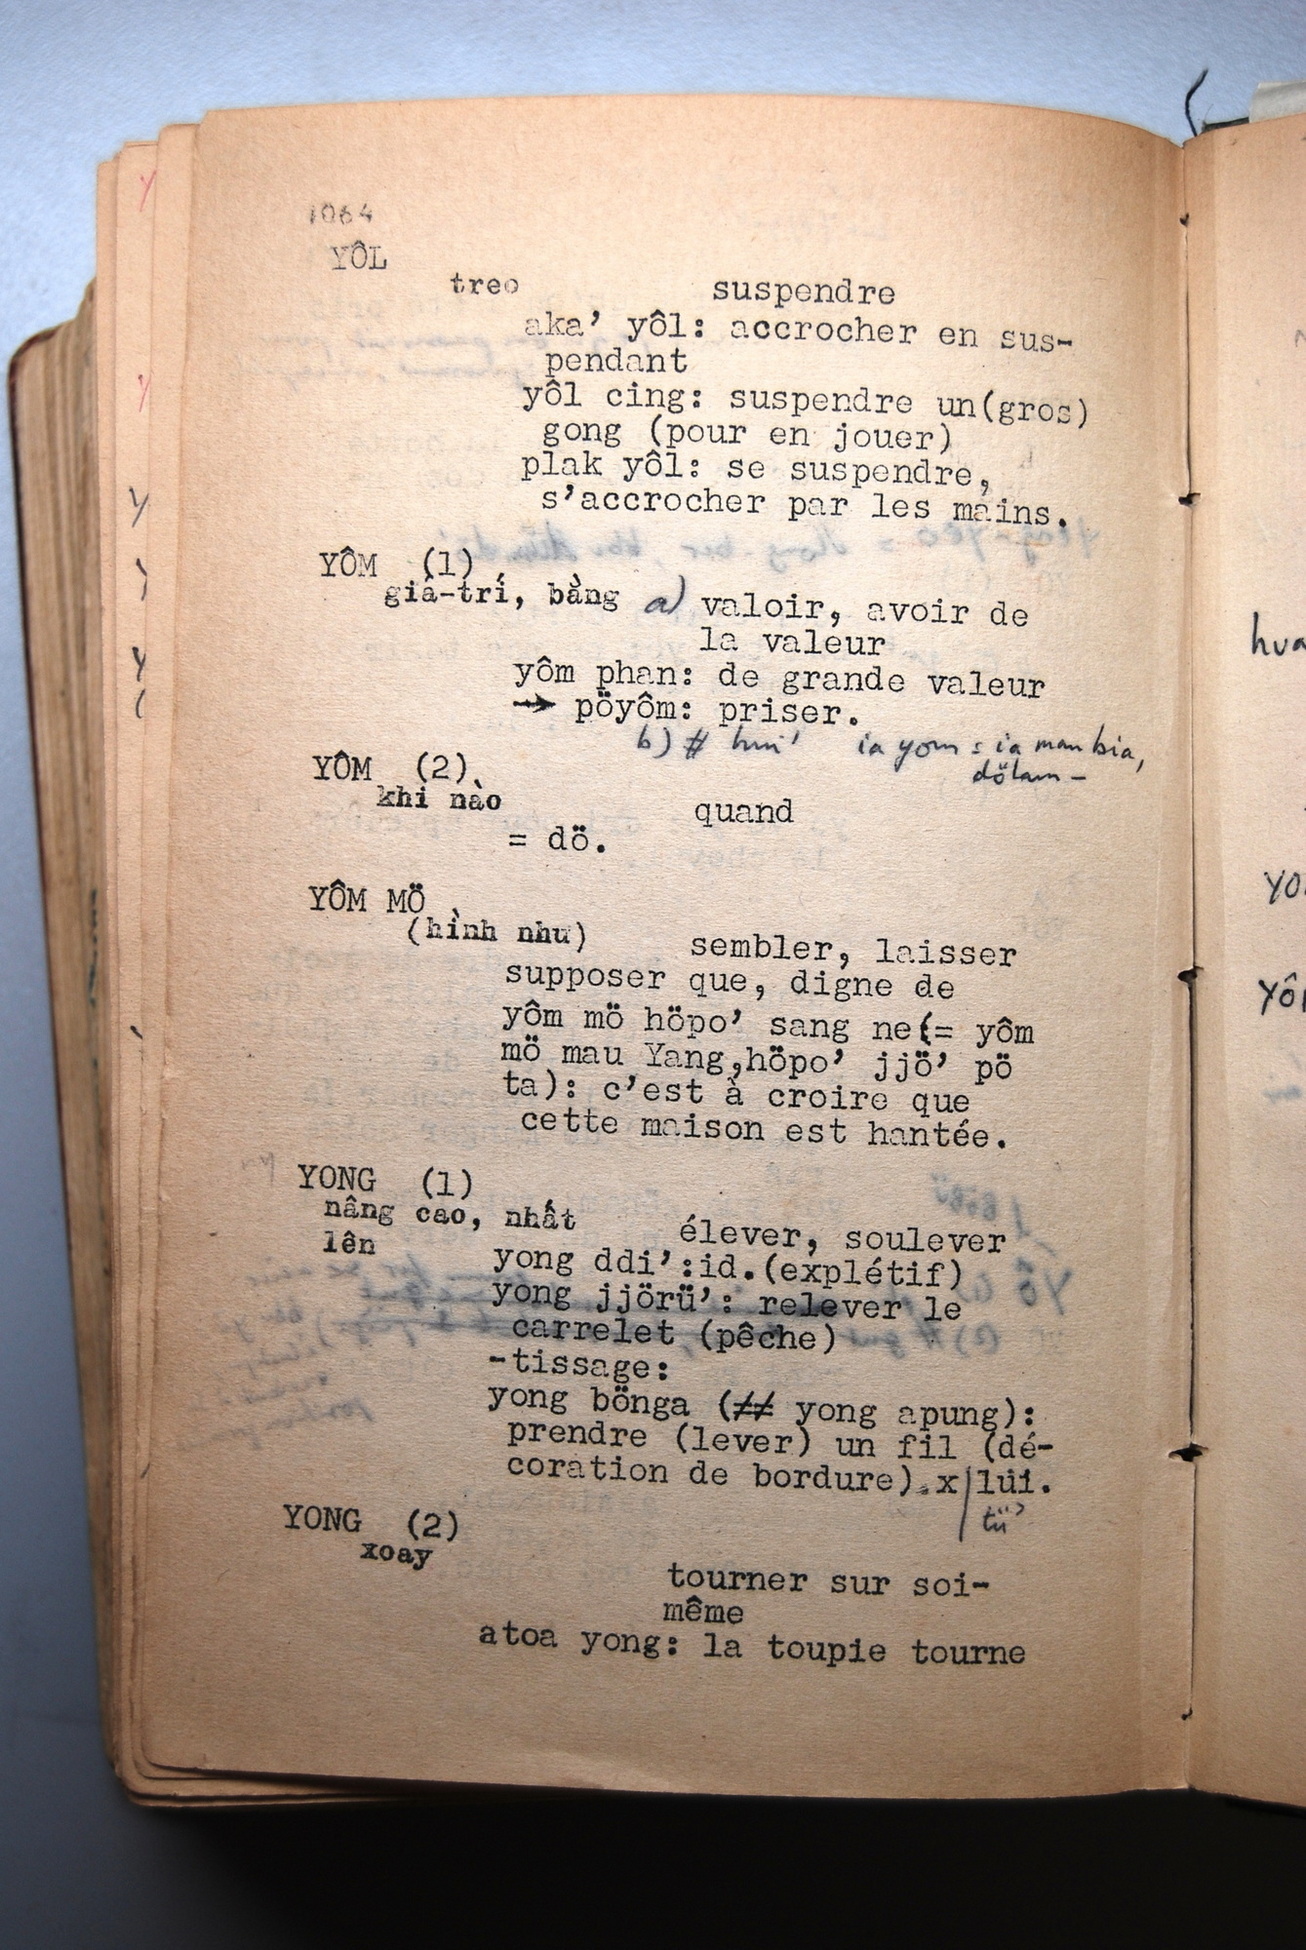 1064
YÔL
treo suspendre
aka' yôl: accrocher en sus-
pendant
yôl cing: suspendre un(gros)
gong (pour en jouer)
plak yôl: se suspendre,
s'accrocher par les mains.
YÔM (1)
giá-trí, bằng a) valoir, avoir de
la valeur
yôm phan: de grande valeur
→ pöyôm: priser.
b) # ia yom = ia man bia,
dölam -
YÔM (2)
khi nào quand
= dö.
YÔM MÖ
(hình như) sembler, laisser
supposer que, digne de
yôm mö höpo' sang ne(= yôm
mö mau Yang,höpo' jjö' pö
ta): c'est à croire que
cette maison est hantée.
YONG (1)
nâng cao, nhất élever, soulever
lên
yong ddi':id.(explétif)
yong jjörü': relever le
carrelet (pêche)
-tissage:
yong bönga (≠≠ yong apung):
prendre (lever) un fil (dé-
coration de bordure).x|lüi.
tü'
YONG (2)
xoay
tourner sur soi-
même
atoa yong: la toupie tourne
hua
YO
YÔ